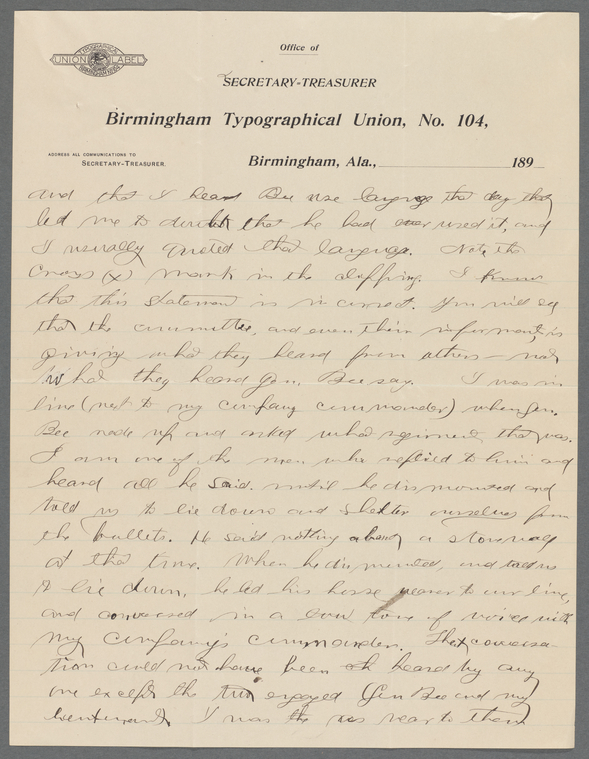 TYPOGRAPHICAL
UNION LABEL
Office of
SECRETARY-TREASURER
Birmingham Typographical Union, No. 104,
ADDRESS ALL COMMUNICATIONS TO
SECRETARY-TREASURER.
Birmingham, Ala., 189
and that I heard Bee use language that day that
led me to doubt that he had ever used it, and
I usually quoted that language. Note the
Cross (x) mark in the clipping. I know
that this statement is incorrect. You will see
that the committee, and even their informant, is
giving what they heard from others — not
what they heard Gen. Bee say. I was in
line (next to my company commander) when Gen.
Bee rode up and asked what regiment that was.
I am one of the men who replied to him and
heard all he said until he dismounted and
told us to lie down and shelter ourselves from
the bullets. He said nothing about a stonewall
at that time. When he dismounted, and told us
to lie down, he led his horse nearer to our line,
and conversed in a low tone of voice with
my company's commander. That conversa-
tion could not have been heard by any
one except the two engaged Gen Bee and my
lieutenant. I was the near to them